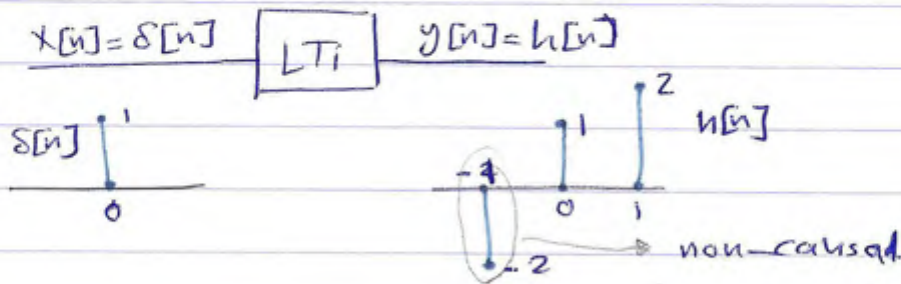 x[n]=δ[n] LTi y[n]=h[n]
δ[n] 1 -1 1 2 h[n]
0 0 1
-2 non-causal